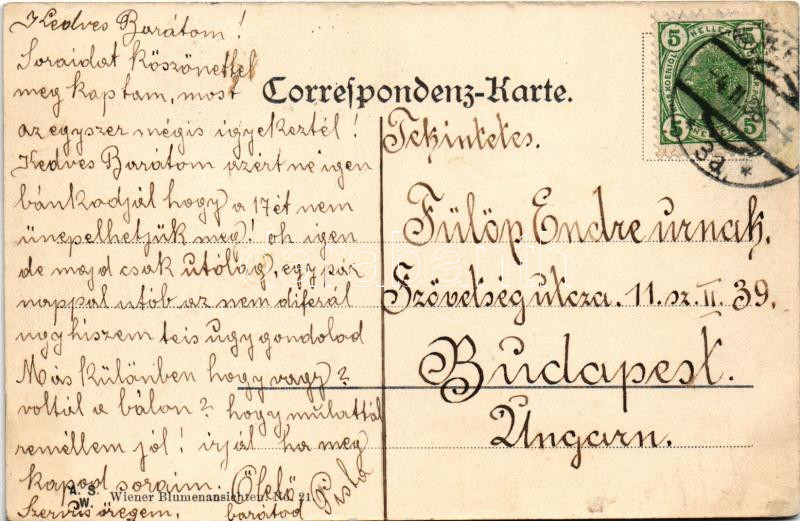 Kedves Barátom!
Soraidat köszönettel
meg kaptam, most
az egyszer mégis igyekeztél!
Kedves Barátom azért ne igen
bánkodjál hogy a 17ét nem
ünepelhetjük meg! oh igen
de majd csak utólag, egy pár
nappal utób az nem diferál
ugy hiszem te is ugy gondolod
Más különben hogy vagy?
voltál a bálon? hogy mulattál
reméllem jól! irjál ha meg
kapod soraim. Ölelő
Szervus öregem. barátod Pista
A. S. W. Wiener Blumenansichten. No. 21
Correspondenz-Karte.
Tekintetes.
Fülöp Endre urnak.
Szövetség utcza. 11. sz. II. 39.
Budapest.
Ungarn.
5 HELLER 5
5 HELLER 5